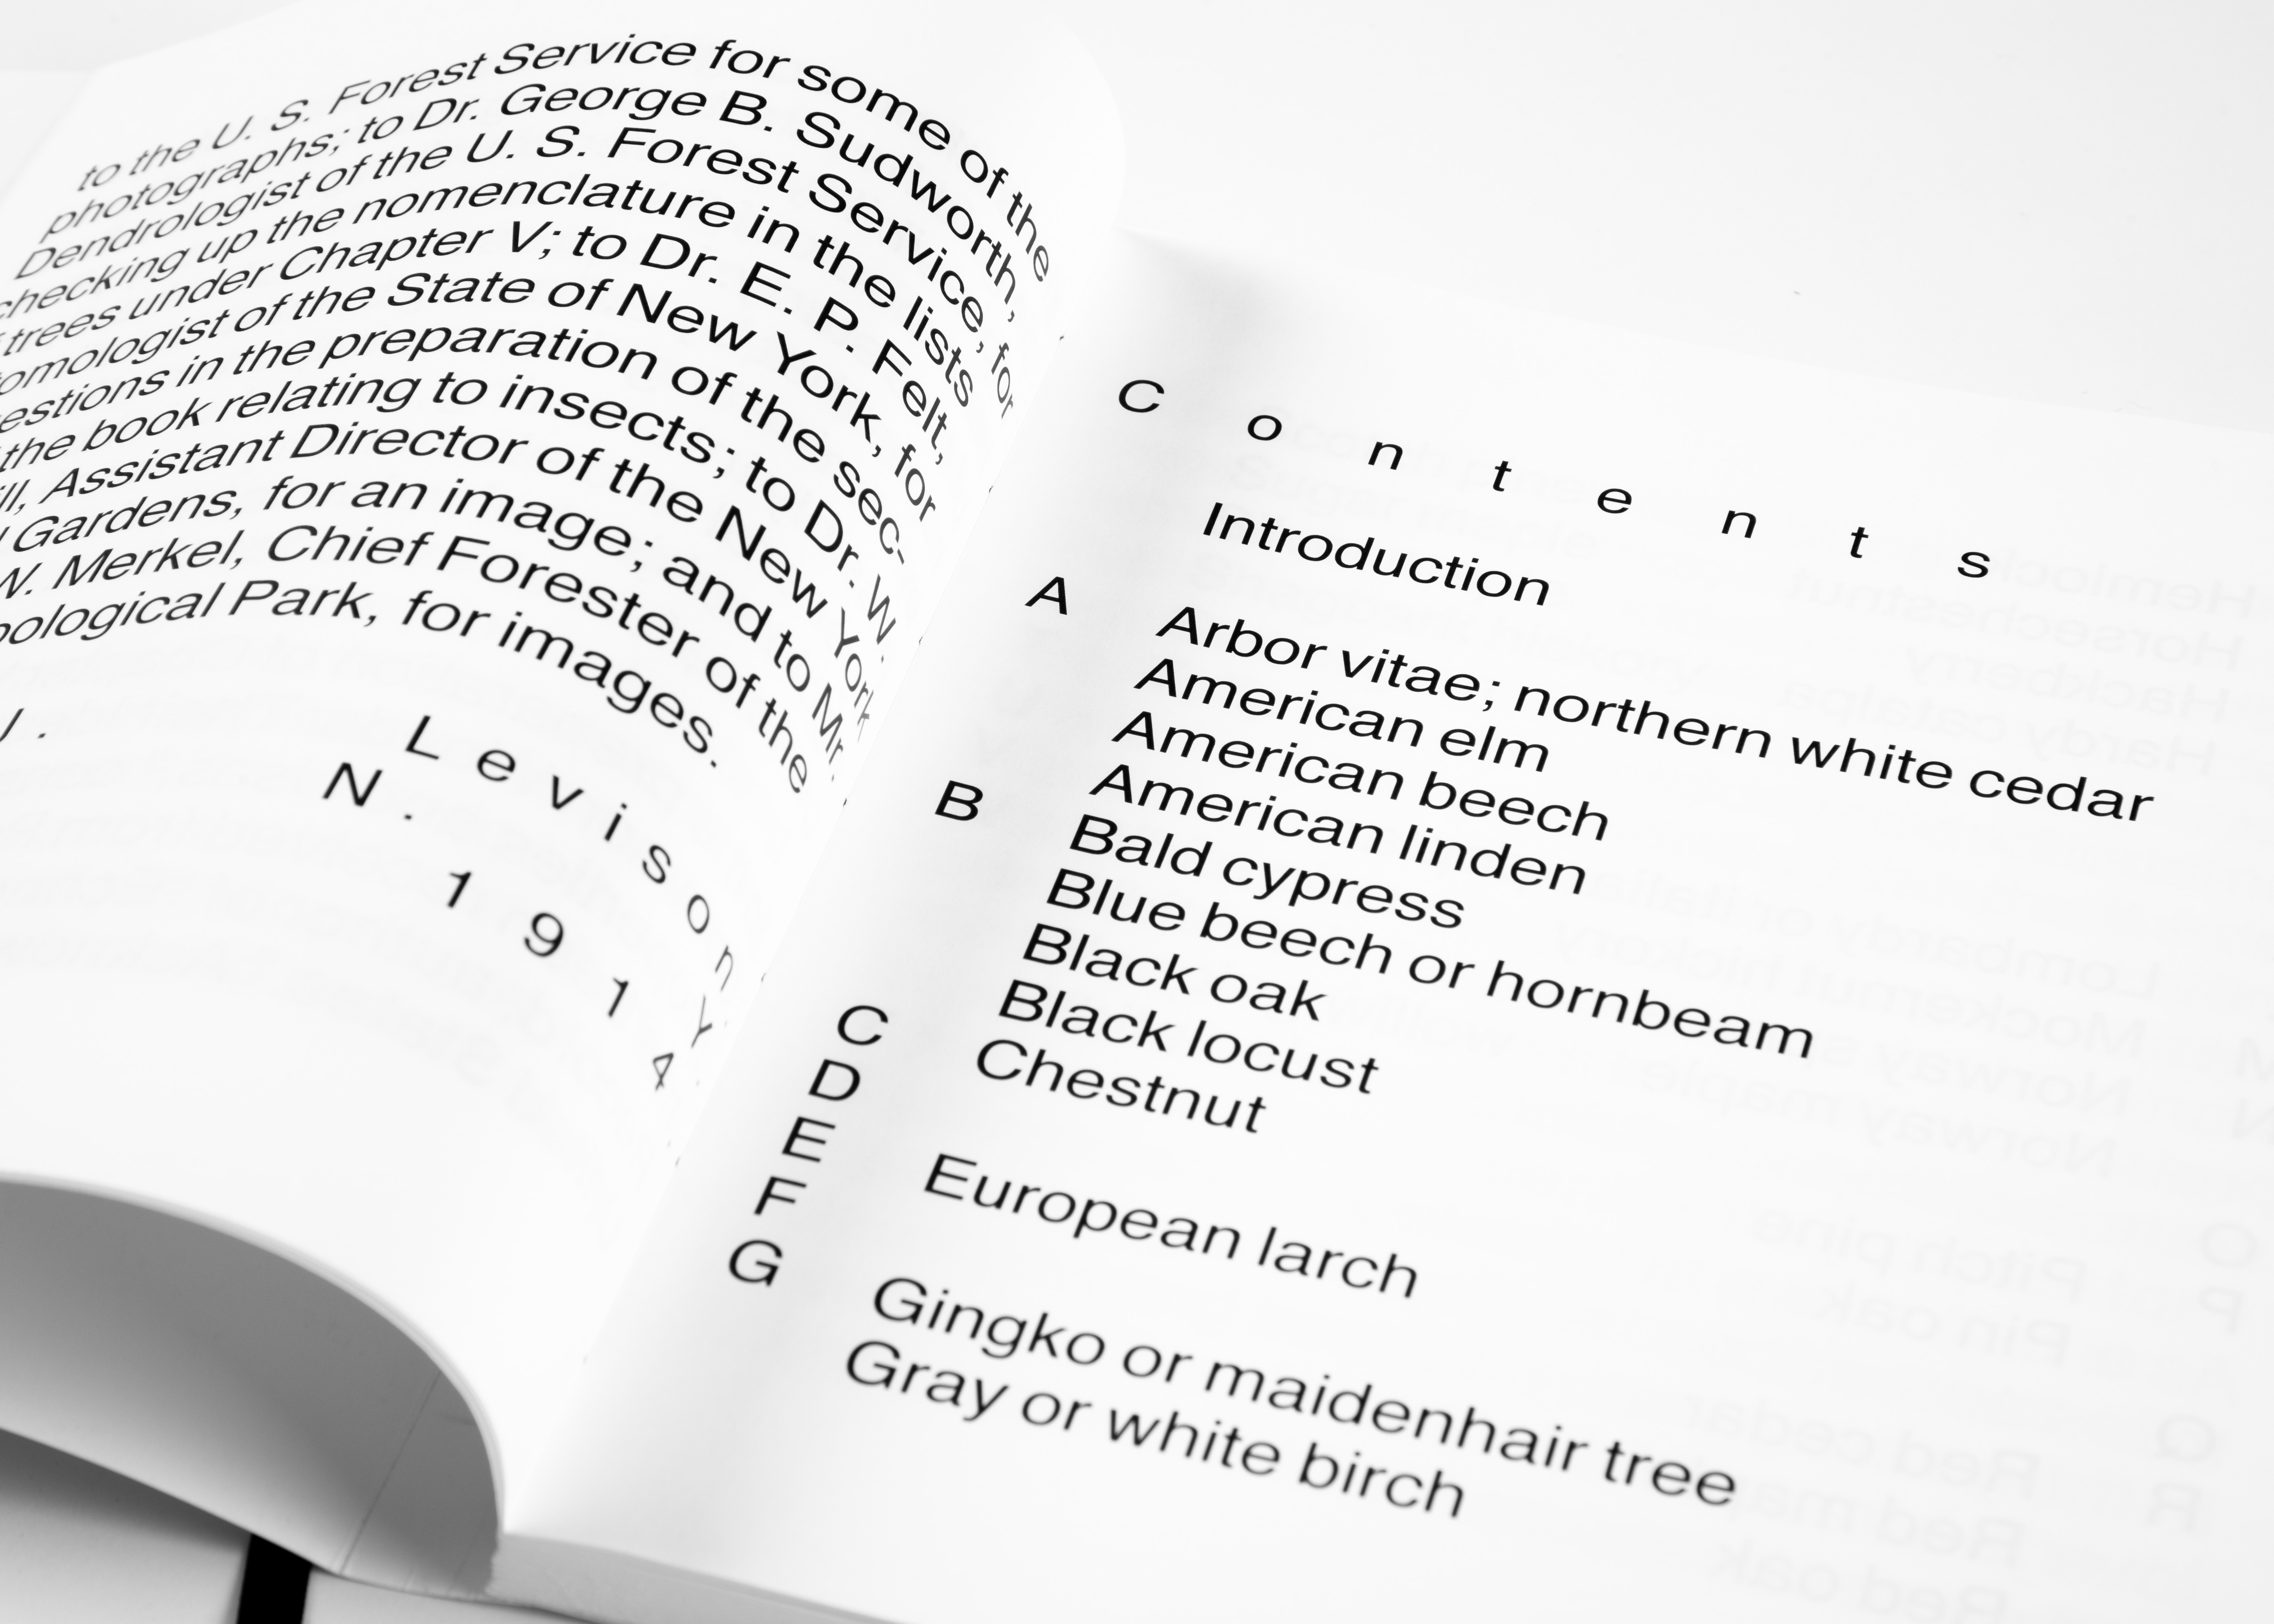 to the U. S. Forest Service for some of the
photographs; to Dr. George B. Sudworth,
Dendrologist of the U. S. Forest Service, for
checking up the nomenclature in the lists
trees under Chapter V; to Dr. E. P. Felt,
tomologist of the State of New York, for
estions in the preparation of the sec-
the book relating to insects; to Dr. W.
ll, Assistant Director of the New York
l Gardens, for an image; and to Mr.
W. Merkel, Chief Forester of the
ological Park, for images.
J. Levison
N. Y.
1914
Contents
Introduction
A Arbor vitae; northern white cedar
American elm
American beech
American linden
B Bald cypress
Blue beech or hornbeam
Black oak
Black locust
C Chestnut
D
E European larch
F
G Gingko or maidenhair tree
Gray or white birch
Hemlock
Horsechestnut
Hackberry
Hardy catalpa
M
N
Norway maple
O
P Pitch pine
Pin oak
Q
R Red cedar
Red oak